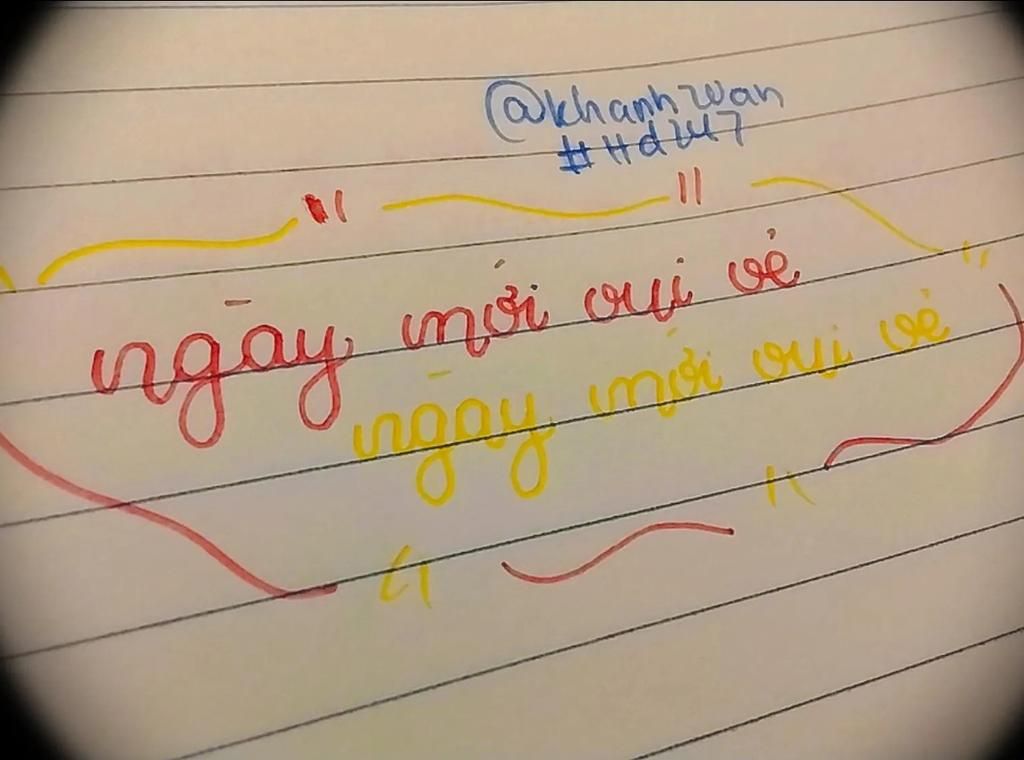 @khanhwan
#Hd247
ngày mới vui vẻ
ngày mới vui vẻ